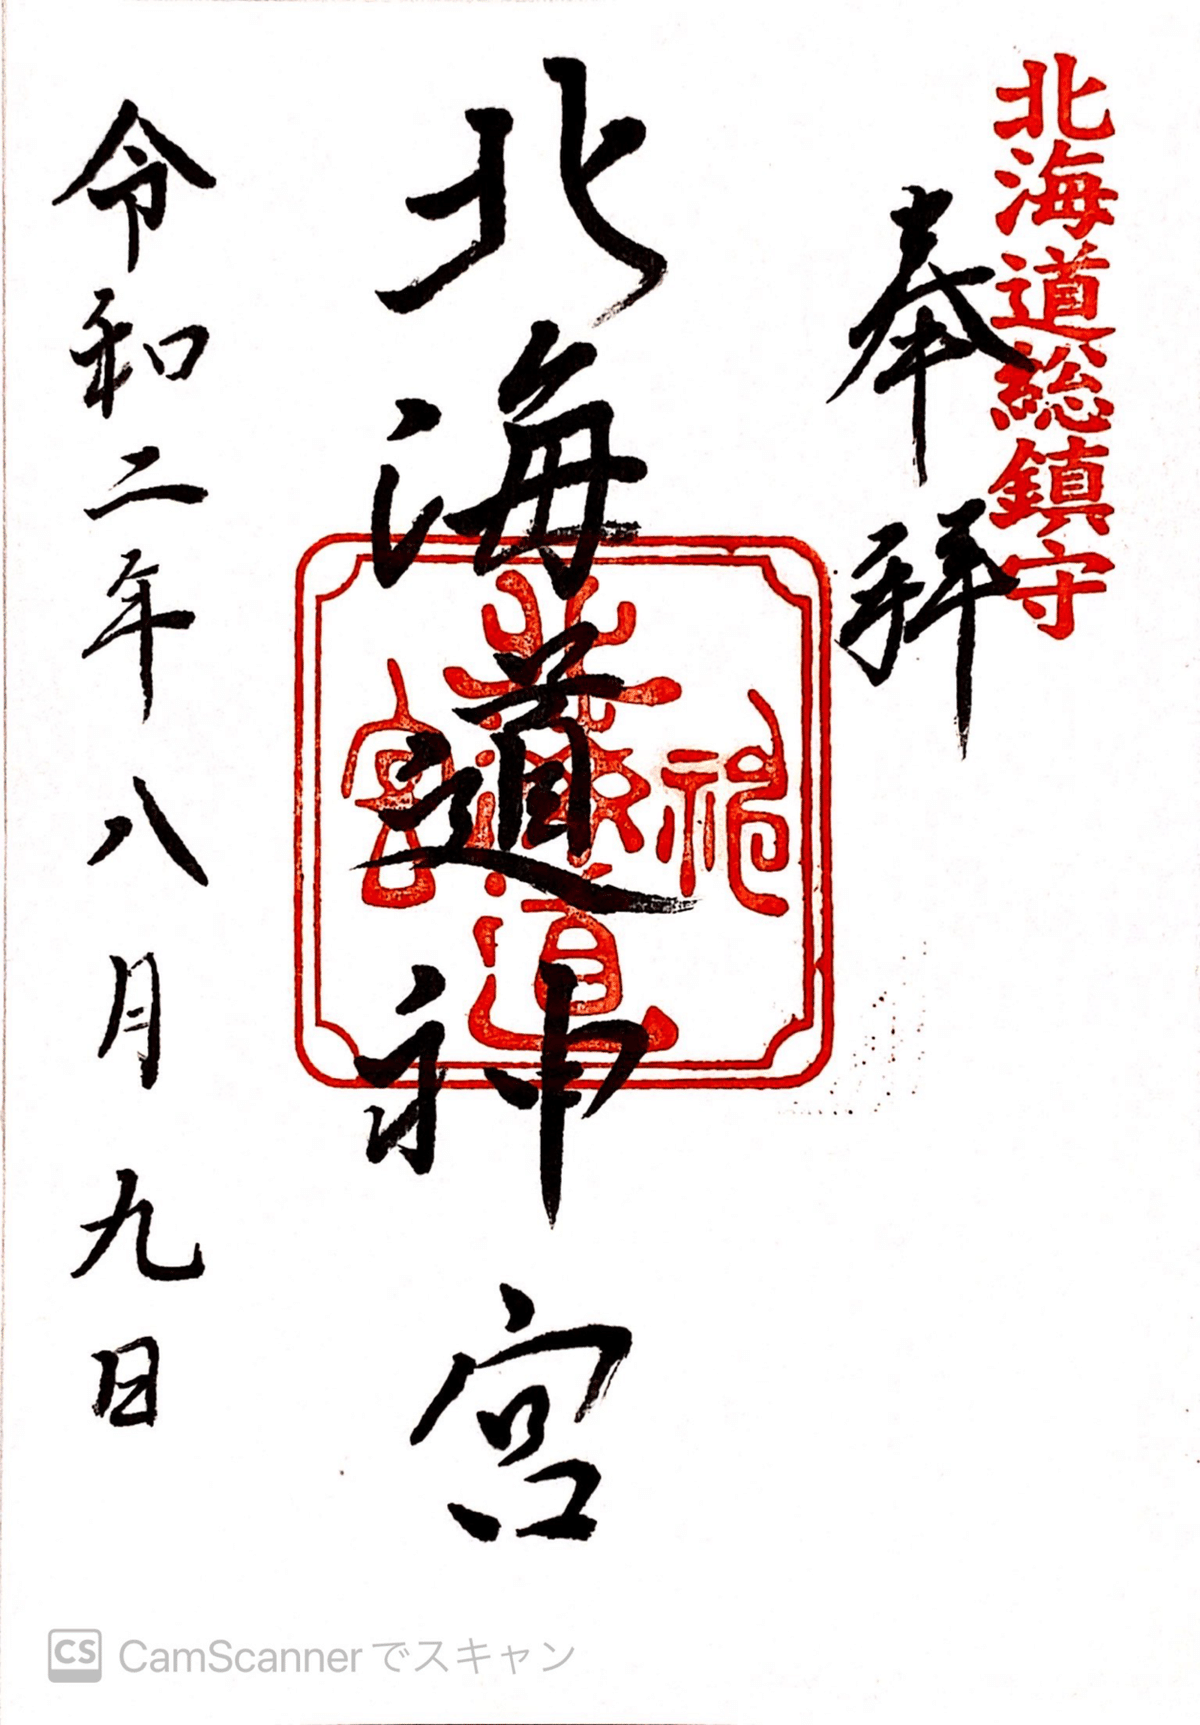 北海道総鎮守
奉拝
北海道神宮
北海道神宮
令和二年八月九日
CS CamScannerでスキャン